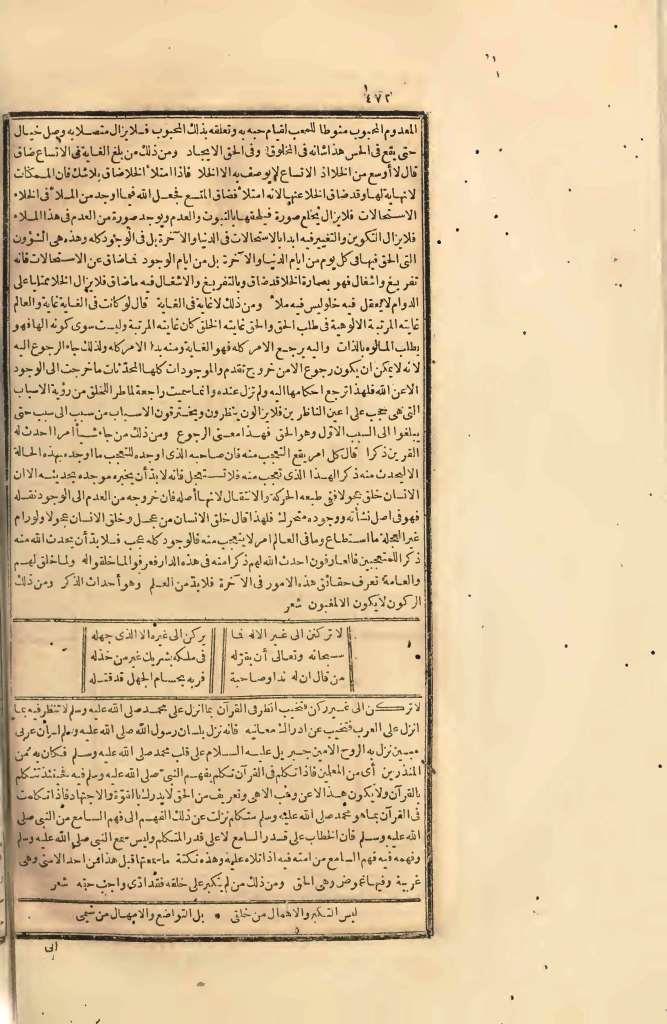 ٤٧٢
المعدوم المحبوب منوطا للمحب لقيام حبه به وتعلقه بذلك المحبوب فلا يزال متصلا به وصل خيال
حتى يقع فى الحس هذا شانه فى المخلوق وفى الحق الايجاد ومن ذلك من بلغ الغاية فى الاتساع ضاق
قال لا أوسع من الخلا اذ الاتساع لا يوصف به الا الخلا فاذا امتلأ الخلا ضاق بلا شك فان الممكنات
لا نهاية لها وقد ضاق الخلا عنها لانه امتلأ فضاق المتسع فجعل الله فيما اوجد من الملأ فى الخلاء
الاستحالات فلا يزال يخلع صورة فيلحقها بالثبوت والعدم ويوجد صورة من العدم فى هذا الملاء
فلا يزال التكوين والتغيير فيه ابدا بالاستحالات فى الدنيا والآخرة بل فى الوجود كله وهذه هى الشؤون
التى الحق فيها فى كل يوم من ايام الدنيا والآخرة بل من ايام الوجود فما ضاق عن الاستحالات فانه
تفريغ واشغال فهو بعمارة الخلا قد ضاق وبالتفريغ والاشغال فيه ما ضاق فلا يزال الخلا ممتليا على
الدوام لا يعقل فيه خلو ليس فيه ملأ ومن ذلك لا غاية فى الغاية قال لو كانت فى الغاية غاية والعالم
غايته المرتبة الالوهية فى طلب الحق والحق غايته الخلق كان غايته المرتبة وليست سوى كونه الها فهو
يطلب المالوه بالذات واليه يرجع الامر كله فهو الغاية ومنه بدا الامر كله ولذلك جاء الرجوع اليه
لانه لا يمكن ان يكون رجوع الا من خروج تقدم والموجودات كلها المحدثات ما خرجت الى الوجود
الا عن الله فلهذا ترجع احكامها اليه ولم تزل عنده وانما سميت راجعة لما طرا للخلق من رؤية الاسباب
التى هى حجب على اعين الناظرين فلا يزالون ينظرون ويخترقون الاسباب من سبب الى سبب حتى
يبلغوا الى السبب الاول وهو الحق فهذا معنى الرجوع ومن ذلك من جاء شيأ امرا احدث له
القرين ذكرا قال كل امر يقع التعجب منه فان صاحبه الذى اوجده للتعجب ما اوجده بهذه الحالة
الا ليحدث منه ذكر الهذا الذى تعجب منه فلا تستعجل فانه لا بد أن يخبره موجده بحديثه الا ان
الانسان خلق عجولا ففى طبعه الحركة والانتقال لانها أصله فان خروجه من العدم الى الوجود نقله
فهو فى اصل نشأته ووجوده متحرك فلهذا قال خلق الانسان من عجل وخلق الانسان عجولا ولو رام
غير العجلة ما استطاع وما فى العالم امر لا يتعجب منه فالوجود كله عجب فلا بد أن يحدث الله منه
ذكرا للمتعجبين فالعارفون احدث الله لهم ذكرا منه فى هذه الدار فعرفوا لما خلقوا له ولما خلق لهم
والعامة تعرف حقائق هذه الامور فى الآخرة فلا بد من العلم وهو أحداث الذكر ومن ذلك
الركون لا يكون الا لمغبون شعر
لا تركنن الى غير الاله فما يركن الى غيره الا الذى جهله
سبحانه وتعالى أن يقر له فى ملكه بشريك غير من خذله
من قال ان له ندا وصاحبة فربه بحسام الجهل قد قتله
لا تركن الى غير ركن فتخيب انظر فى القرآن بما انزل على محمد صلى الله عليه وسلم لا تنظر فيه بما
انزل على العرب فتخيب عن ادراك معانيه فانه نزل بلسان رسول الله صلى الله عليه وسلم لسان عربى
مبين نزل به الروح الامين جبريل عليه السلام على قلب محمد صلى الله عليه وسلم فكان به من
المنذرين أى من المعلمين فاذا تكلم فى القرآن تكلم بفهم النبى صلى الله عليه وسلم فيه فحينئذ تتكلم
بالقرآن ولا يكون هذا الا عن وهب الاهى وتعريف من الحق لا يدرك بالقوة والاجتهاد فاذا تكلمت
فى القرآن بما هو محمد صلى الله عليه وسلم متكلم نزلت عن ذلك الفهم الى فهم السامع من النبى صلى
الله عليه وسلم فان الخطاب على قدر السامع لا على قدر المتكلم وليس سمع النبى صلى الله عليه وسلم
وفهمه فيه فهم السامع من امته فيه اذا تلاه عليه وهذه نكتة ما سمعتها قبل هذا من احد الا منى وهى
غريبة وفيها غموض وهى الحق ومن ذلك من لم يتكبر على خلقه فقد ادى واجب حقه شعر
ليس التكبر والاهمال من خلقى * بل التواضع والامهال من شيمى
الى